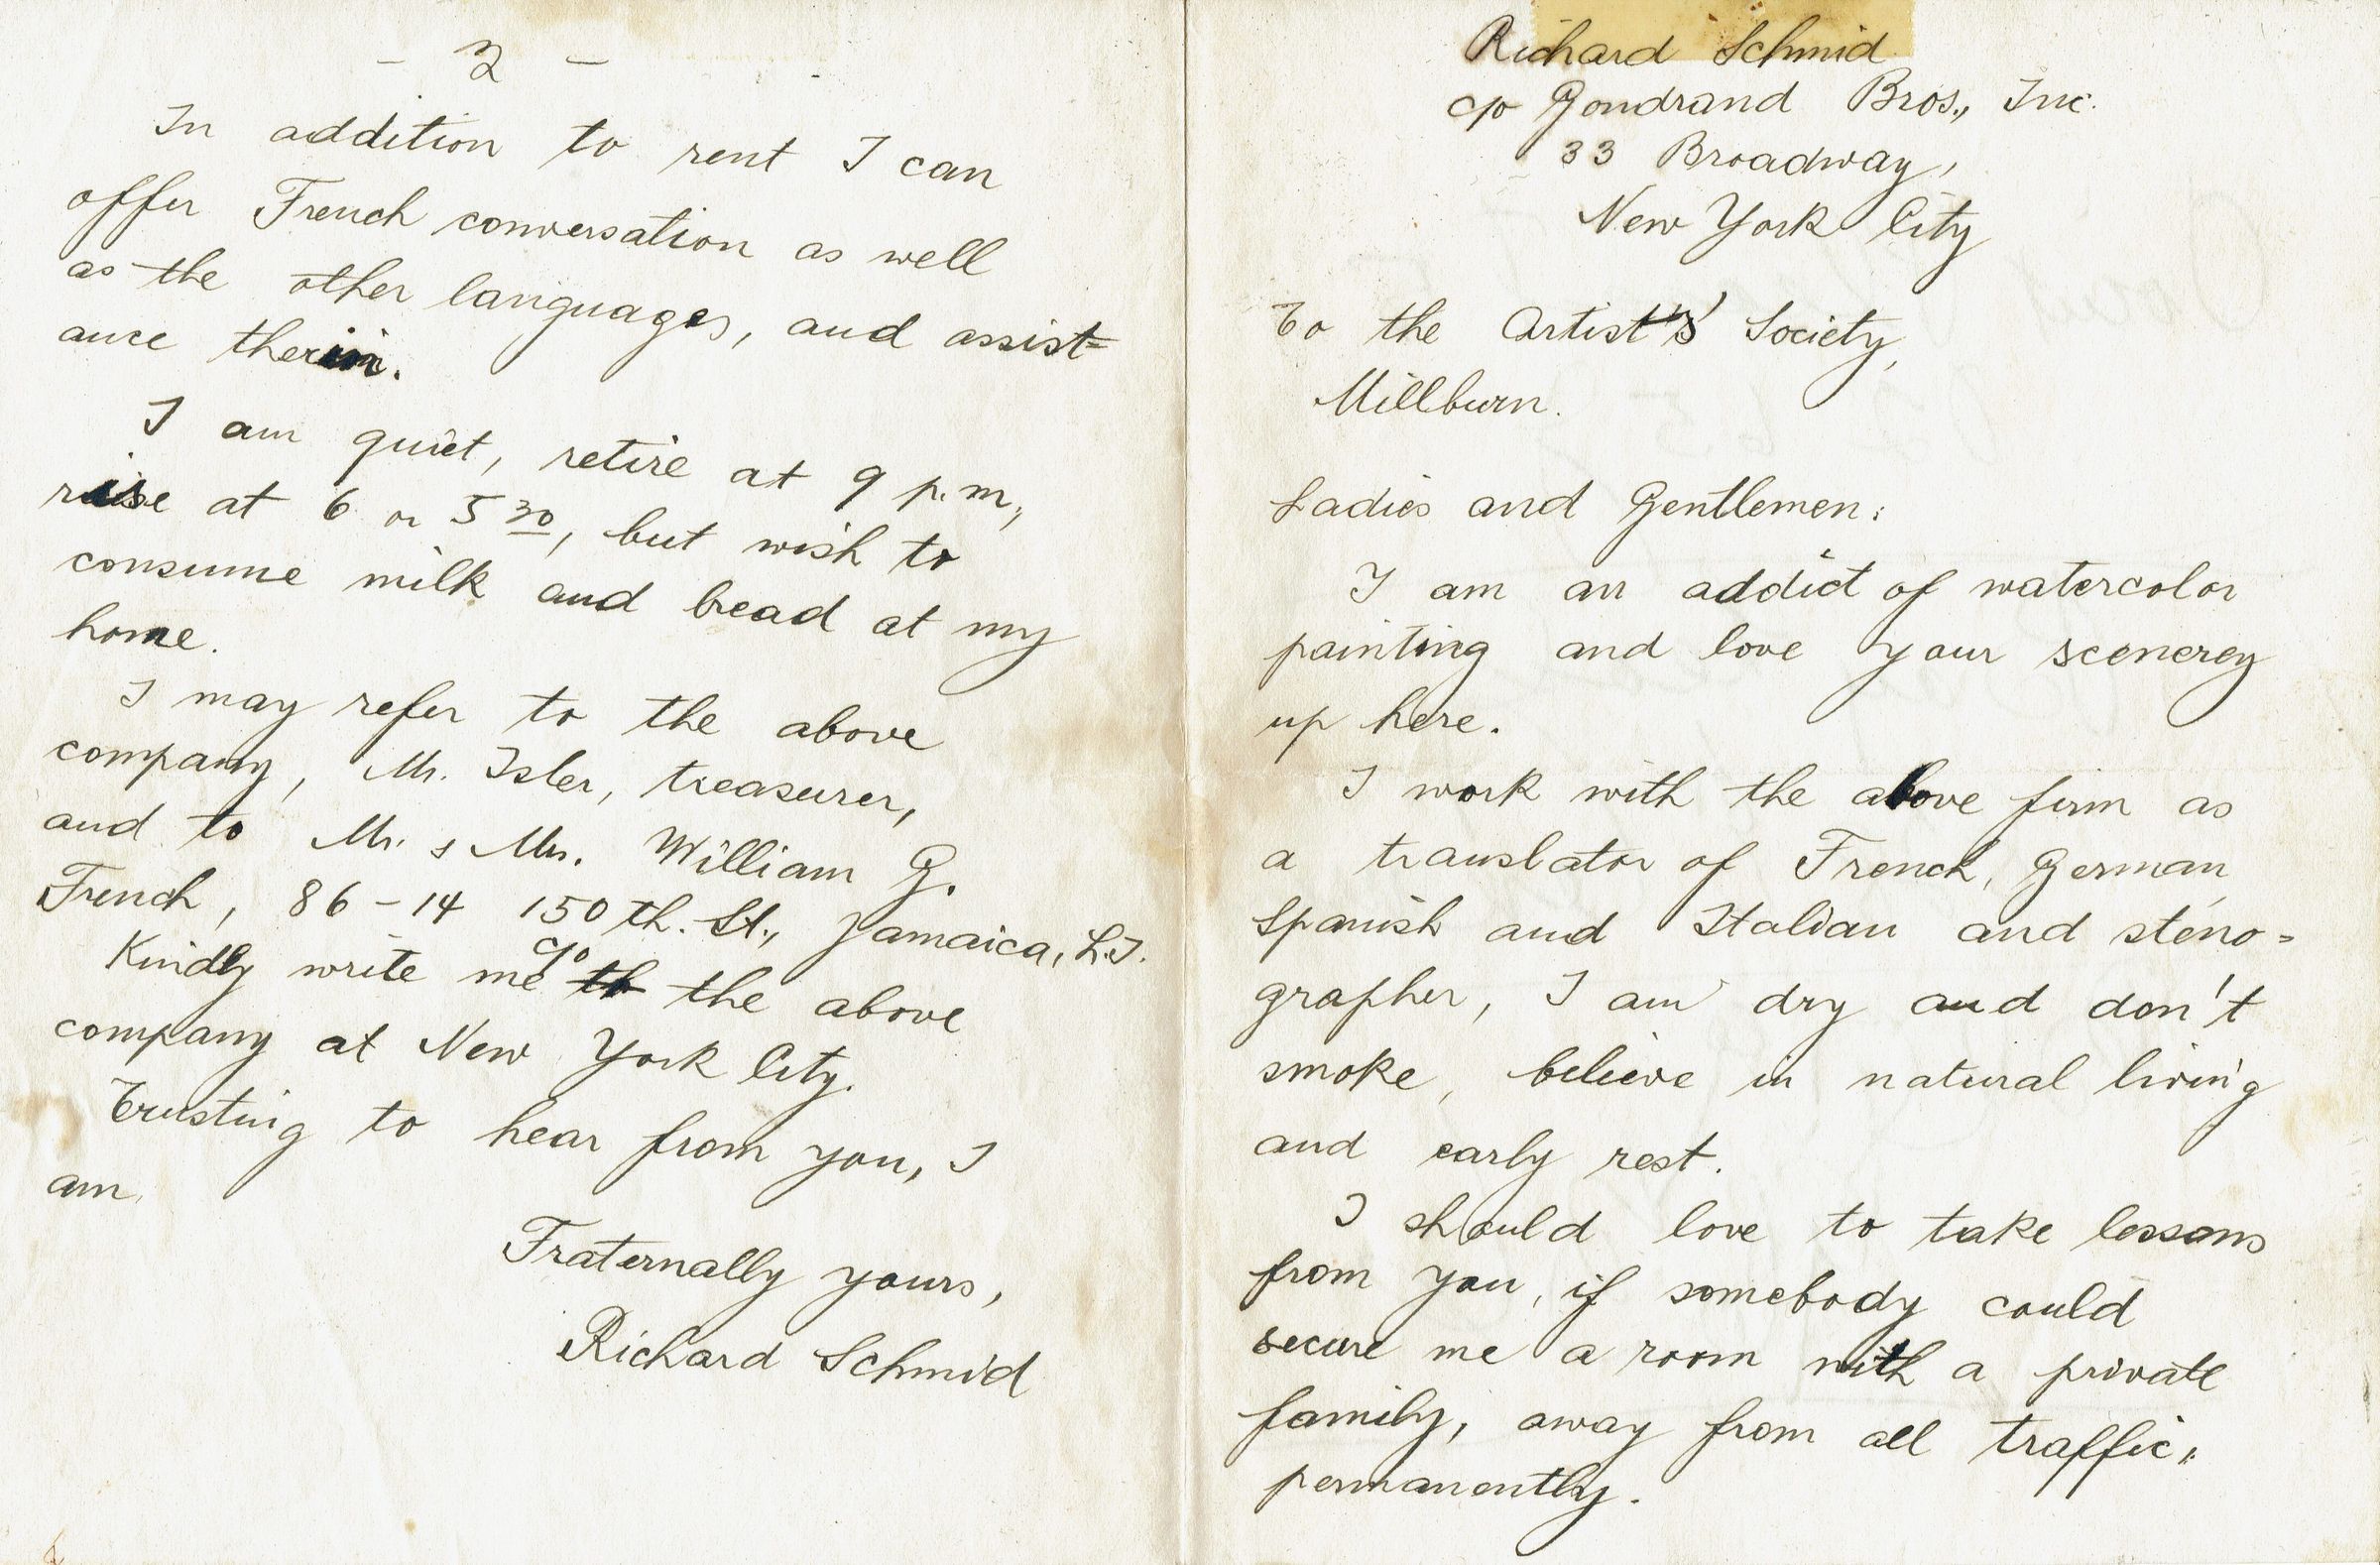 Richard Schmid
c/o Gondrand Bros., Inc.
33 Broadway,
New York City
To the Artists' Society,
Millburn.
Ladies and Gentlemen:
I am an addict of watercolor
painting and love your scenerey
up here.
I work with the above firm as
a translator of French, German,
Spanish and Italian and steno=
grapher, I am dry and don't
smoke, believe in natural living
and early rest.
I should love to take lessons
from you, if somebody could
secure me a room with a private
family, away from all traffic,
permanently.
- 2 -
In addition to rent I can
offer French conversation as well
as the other languages, and assist=
ance therin.
I am quiet, retire at 9 p.m.,
rise at 6 or 5 30, but wish to
consume milk and bread at my
home.
I may refer to the above
company, Mr. Isler, treasurer,
and to Mr. & Mrs. William G.
French, 86-14 150th. St., Jamaica, L.I.
Kindly write me c/o the above
company at New York City.
Trusting to hear from you, I
am,
Fraternally yours,
Richard Schmid